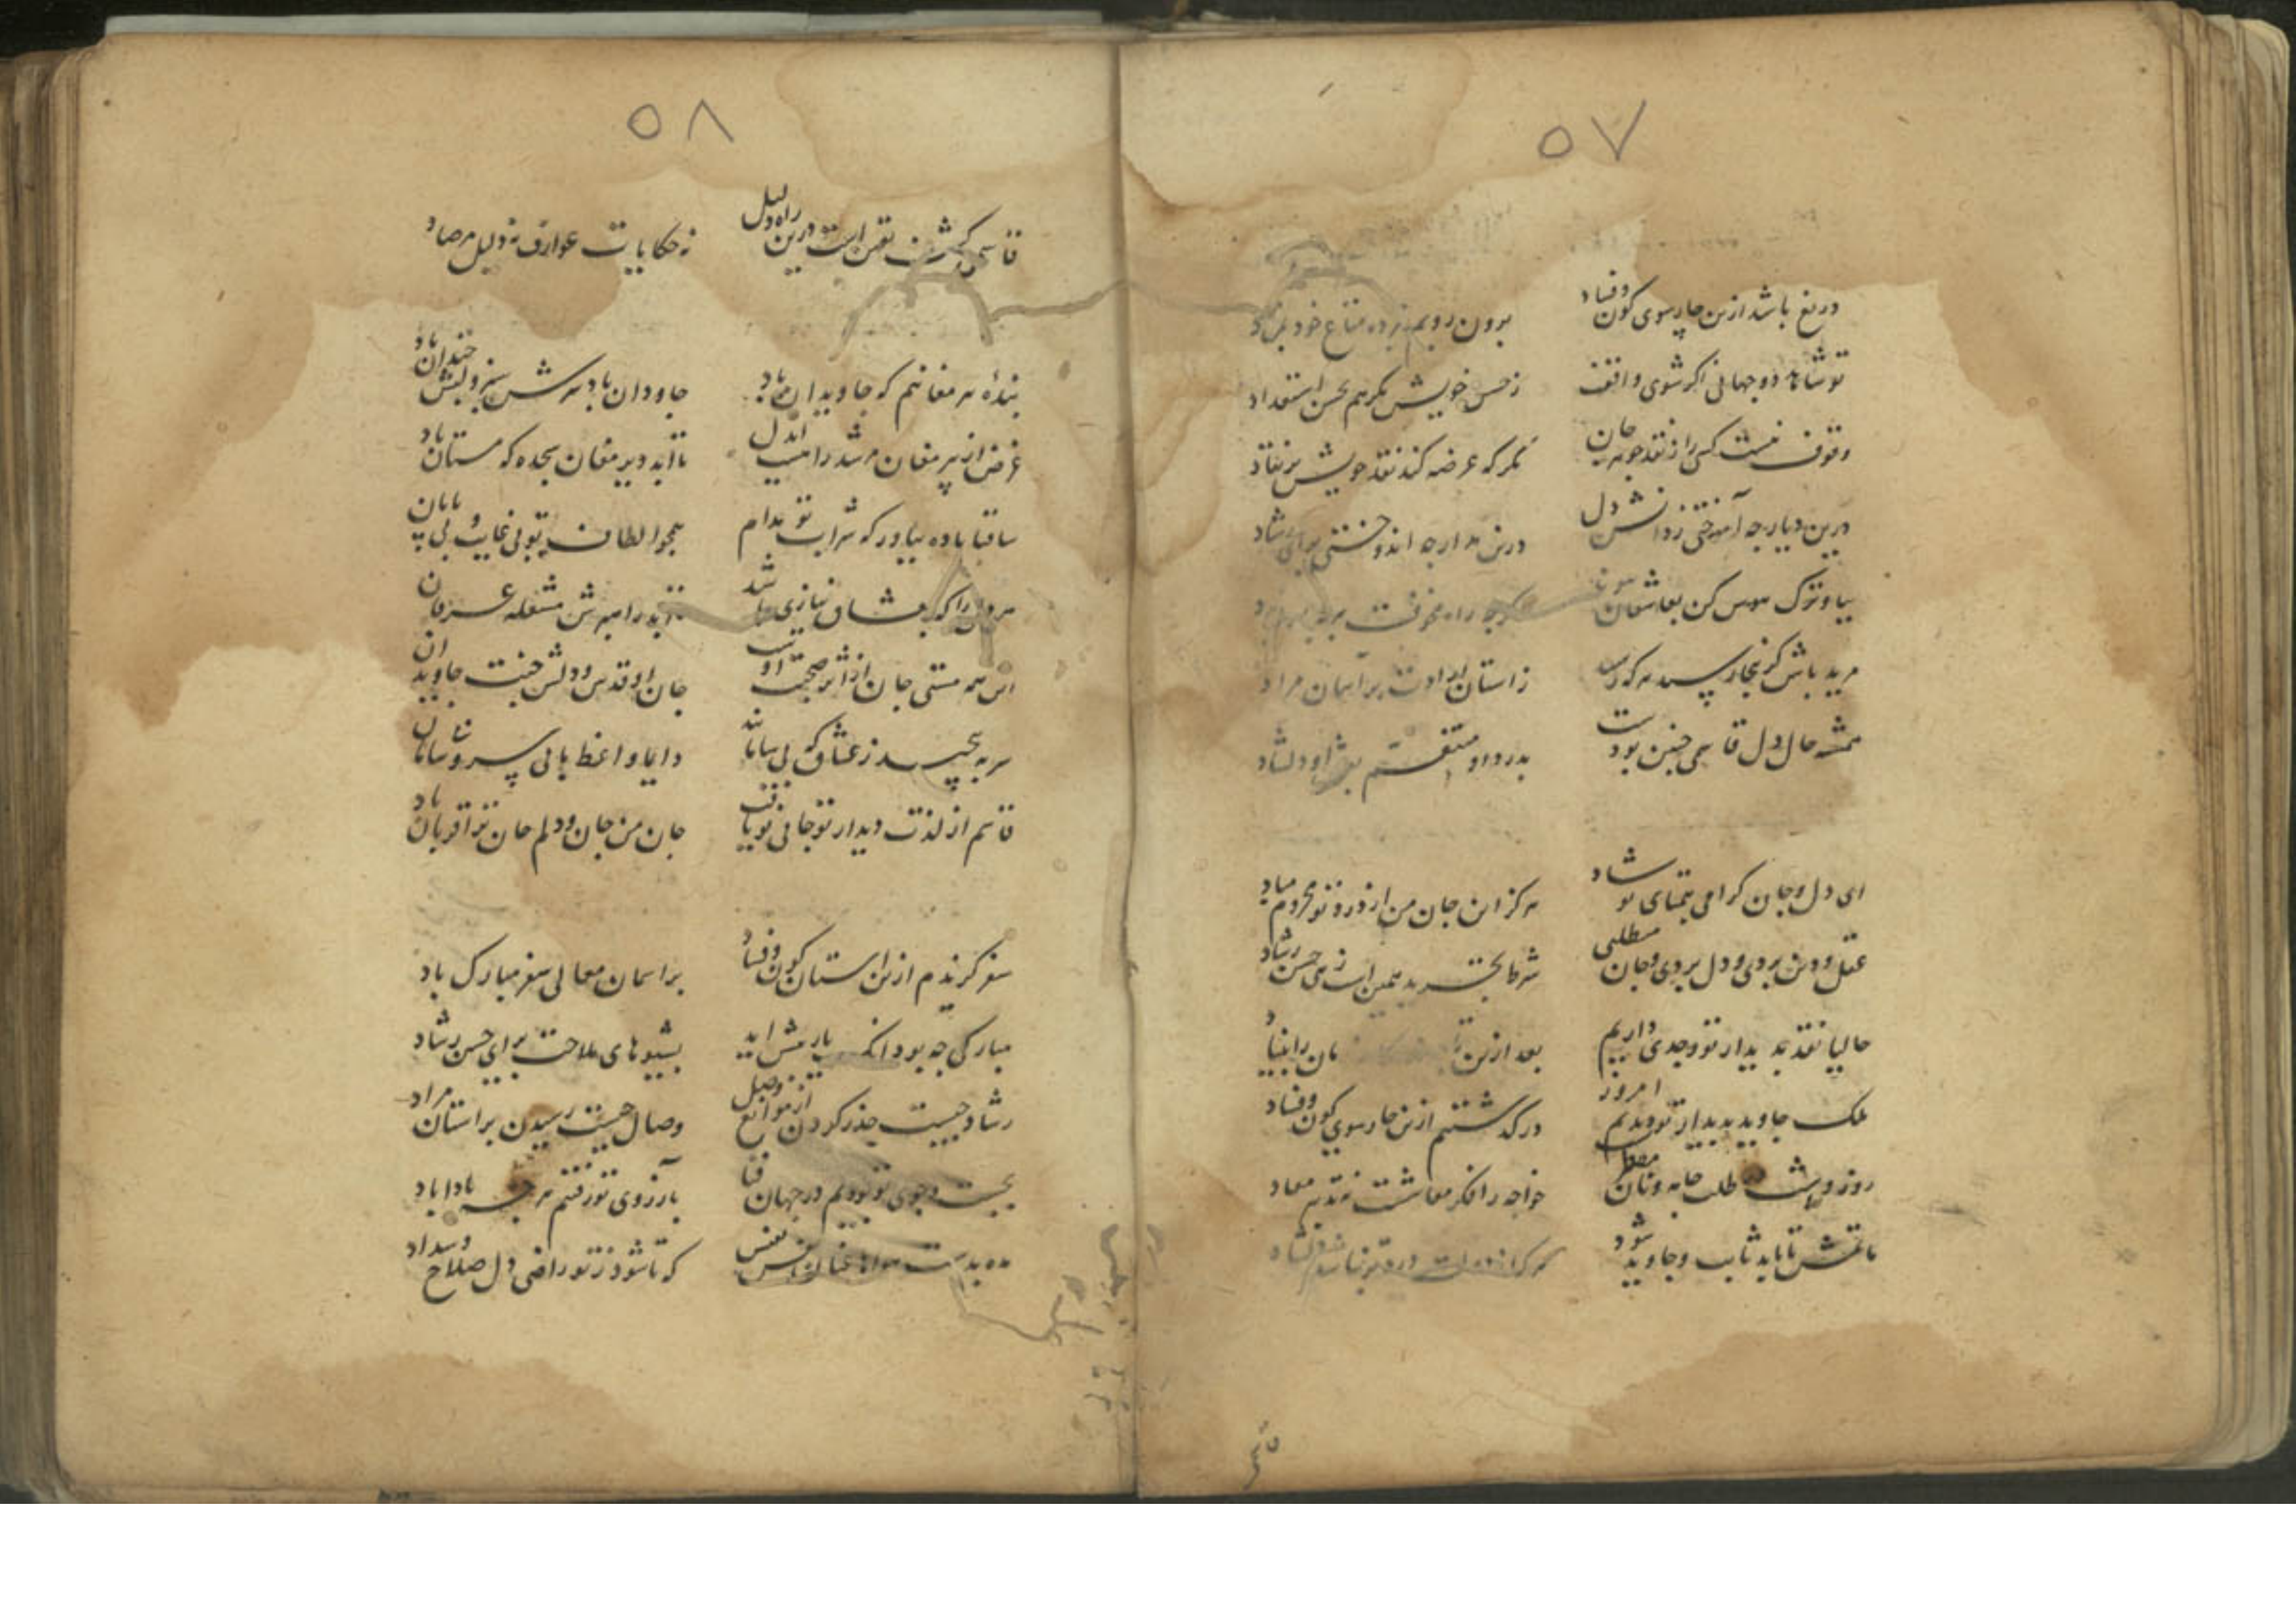 ۵۷
دریغ باشد ازین چارسوی کون و فساد
برون رویم نبرده متاع خود بمراد
تو شاه دو جهانی اگر شوی واقف
ز حسن خویش نگر هم بحسن استعداد
وقوف نیست کسی را ز نقد جوهر جان
مگر که عرضه کند نقد خویش بر نقاد
درین دیار چه آموختی ز دانش دل
درین مدار چه اندوختی برای
بیا و ترک هوس کن بعاشقان
راه مخوفست
مرید باش کزینجا رسید هر که رسید
ز آستان ارادت بر آسمان مراد
همیشه حال دل قاسمی چنین بودست
بدرد او متقسم بعشق او دلشاد
ای دل و جان گرامی بتمنای تو شاد
هرگز این جان من از درد تو محروم مباد
عقل و دین بردی و دل بردی و جان مطلبی
شرط تجرید همین است زهی حسن رشاد
حالیا نقد بدیدار تو وجدی داریم
بعد ازین
ملک جاوید بدیدار تو دیدیم امروز
در گذشتیم ازین چارسوی کون و فساد
روز و شب در طلب جامه و نان
خواجه را فکر معاشست نه تدبیر معاد
ماتمش تا بابد ثابت و جاوید شود
هر که از دولت درد تو نباشد دلشاد
قاسمی
۵۸
قاسمی کشف یقین است درین راه دلیل
نه حکایات عوارف نه دلیل مرصاد
بندهٔ پیر مغانم که جاویدان باد
جاودان باد سرش سبز و لبش خندان باد
غرض از پیر مغان مرشد راهست ای دل
تا ابد دیر مغان سجده گه مستان باد
ساقیا باده بیاور که شراب تو مدام
همچو الطاف تو بی غایت و بی پایان باد
هر دل را که بعشاق نیازی باشد
تا ابد راهبرش مشعله عرفان
این همه مستی جان از اثر صحبت اوست
جان او قدس و دلش جنت جاویدان
سر بپیچید ز عشاق که بی سامانند
دایما واعظ ما بی سر و سامان
قاسم از لذت دیدار تو جانی نو یافت
جان من جان و دلم جان ترا قربان باد
سفر گزیدم ازین آستان کون و فساد
بر آسمان معالی سفر مبارک باد
مبارکی چه بود آنکه یار پیش آید
بشیوهای ملاحت برای حسن رشاد
رشاد چیست حذر کردن از موانع وصل
وصال چیست رسیدن بر آستان مراد
بجست و جوی تو بودیم در جهان فنا
بآرزوی تو رفتیم هر چه بادا باد
مده بدست هوا عنان نفس نفس
که تا شود ز تو راضی دل صلاح و سداد